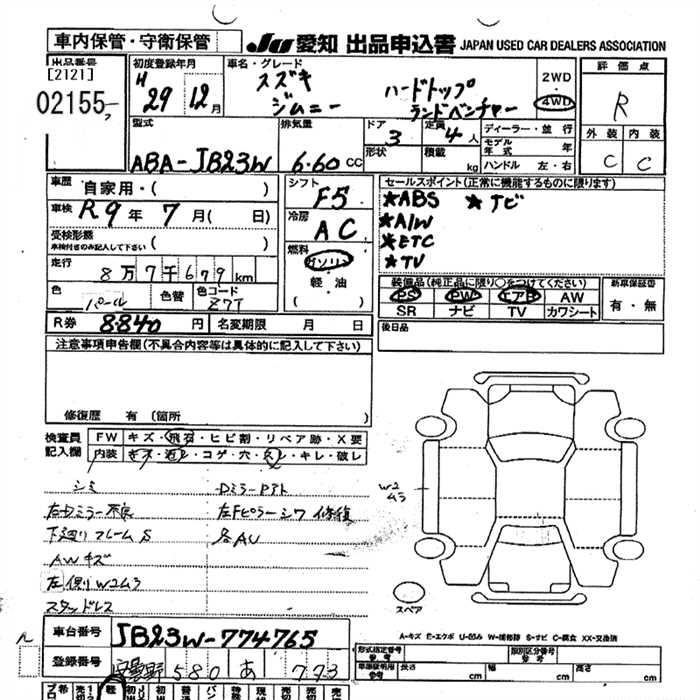 車内保管・守衛保管
JU 愛知 出品申込書 JAPAN USED CAR DEALERS ASSOCIATION
出品番号 初度登録年月 車名・グレード 2WD 評価点
[2121] H スズキ ハードトップ
02155 29 12月 ジムニー ランドベンチャー 4WD R
型式 排気量 ドア 定員 ディーラー・並行 外装 内装
3 4人 モデル年式 年
ABA-JB23W 6.60CC 形状 積載 kg ハンドル 左・右 C C
車歴 自家用・( ) シフト F5 セールスポイント(正常に機能するものに限ります)
車検 R9年7月( 日) 冷房 AC ★ABS ★ナビ
受検形態 ★A/W
車検付きのみ記入して下さい ( ) 燃料 ★ETC
走行 ガソリン ★TV
8万7千679km 軽・油 装備品(純正品に限り○をつけてください) 新車保証書
色 パール 色替 色コード Z7T PS PW エアB AW 有・無
SR ナビ TV カワシート
R券 8840円 名変期限 月 日 後日品
注意事項申告欄(不具合内容等は具体的に記入して下さい)
修復歴 有(箇所 )
検査員 FW キズ・飛石・ヒビ割・リペア跡・X要
記入欄 内装 キズ・コゲ・穴・キレ・破レ
シミ Dミラー
右Dミラー不良 左Fピラーシワ 修復
下廻りフレームS 各AU
AWキズ
左側りW2ムラ
W2
ムラ
スタッドレス
スペア
A-キズ E-エクボ U-凹み W-補修跡 S-サビ C-腐食 XX-交換済
車台番号 JB23W-774765 形式指定番号 類別区分番号
参考
登録番号 580 あ 773 長さ 幅 高さ